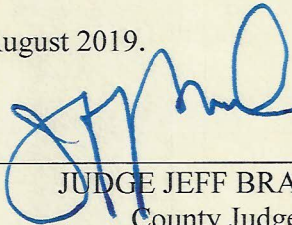 August 2019.
JUDGE JEFF BRA
County Judge